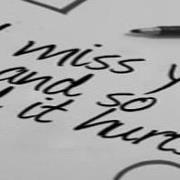 I miss y
and so
it hurts